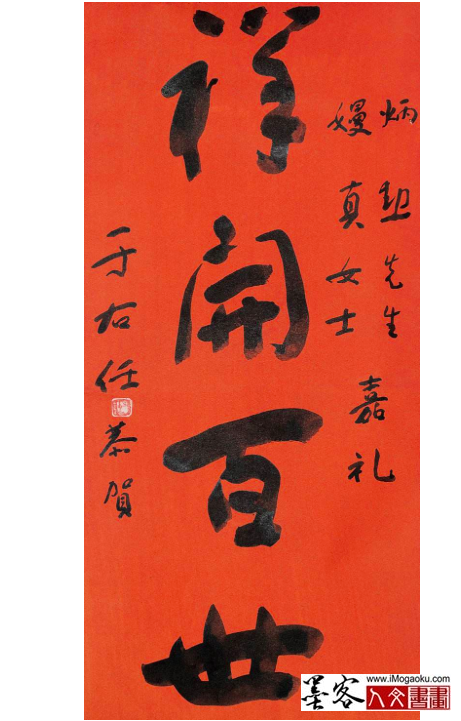 炳先生
嫚真女士
嘉礼
祥開百世
于右任恭賀
www.iMogaoku.com
墨客
人文書畫